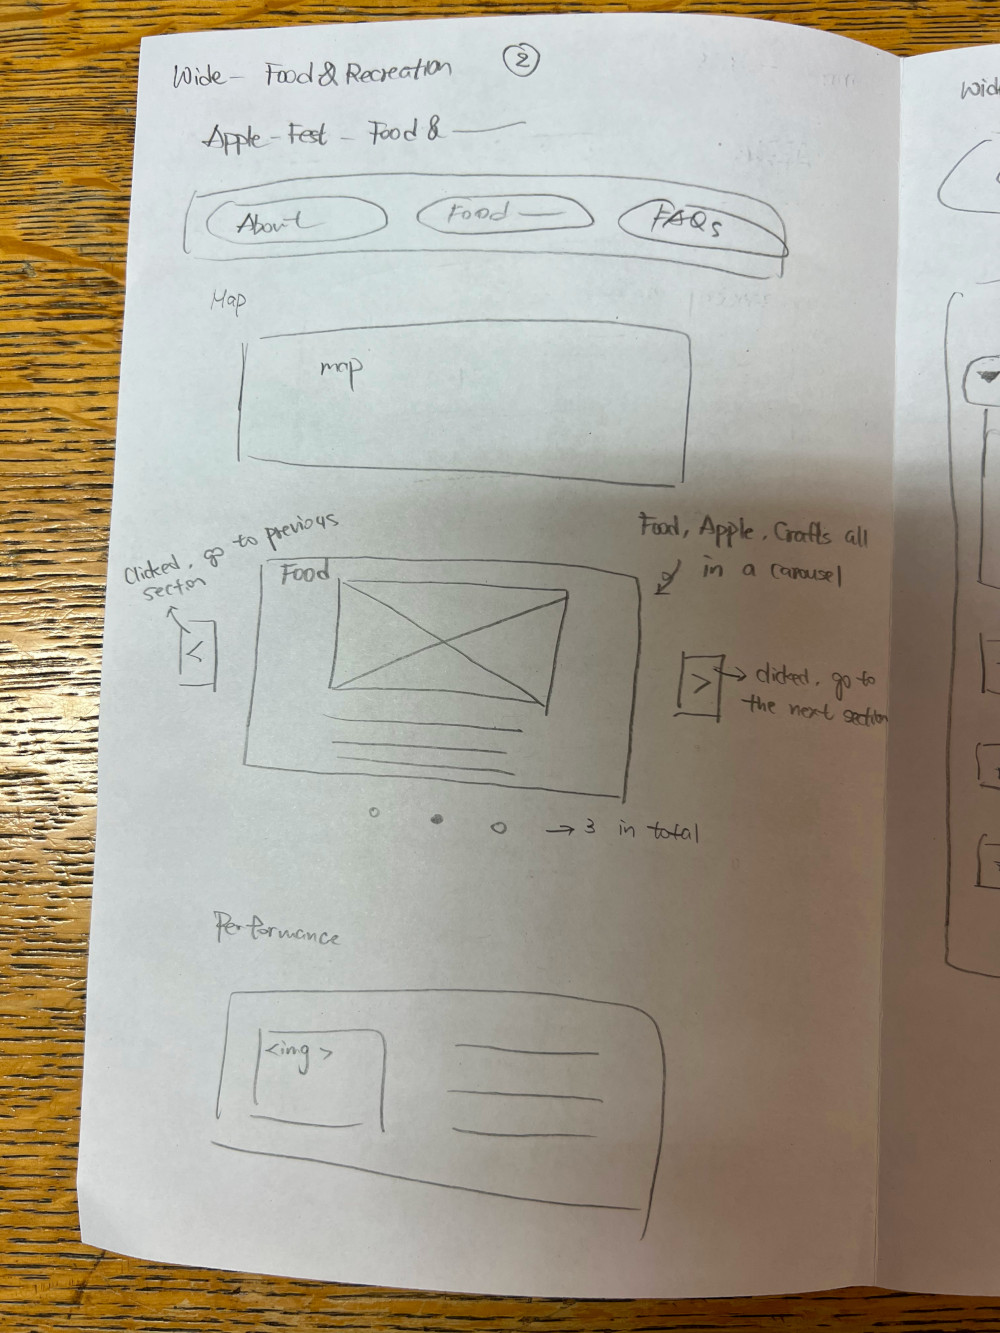 Wide - Food & Recreation ②
Apple-Fest - Food &
About
Food
FAQs
Map
map
Clicked, go to previous
section
<
Food
Food, Apple, Crafts all
in a carousel
>
clicked, go to
the next section
3 in total
Performance
<img>
Wid